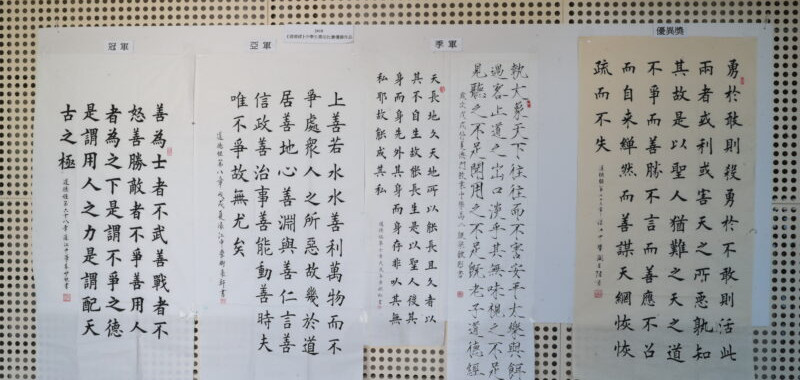 2018
冠軍
善為士者不武善戰者不
怒善勝敵者不爭善用人
者為之下是謂不爭之德
是謂用人之力是謂配天
古之極
道德經第六十八章
亞軍
上善若水水善利萬物而不
爭處眾人之所惡故幾於道
居善地心善淵與善仁言善
信政善治事善能動善時夫
唯不爭故無尤矣
道德經第八章 戊戌夏
季軍
天長地久天地所以能長且久者以
其不自生故能長生是以聖人後其
身而身先外其身而身存非以其無
私耶故能成其私
執大象天下往往而不害安平太樂與餌
過客止道之出口淡乎其無味視之不足
見聽之不足聞用之不足既老子道德經
優異獎
勇於敢則殺勇於不敢則活此
兩者或利或害天之所惡孰知
其故是以聖人猶難之天之道
不爭而善勝不言而善應不召
而自來繟然而善謀天網恢恢
疏而不失